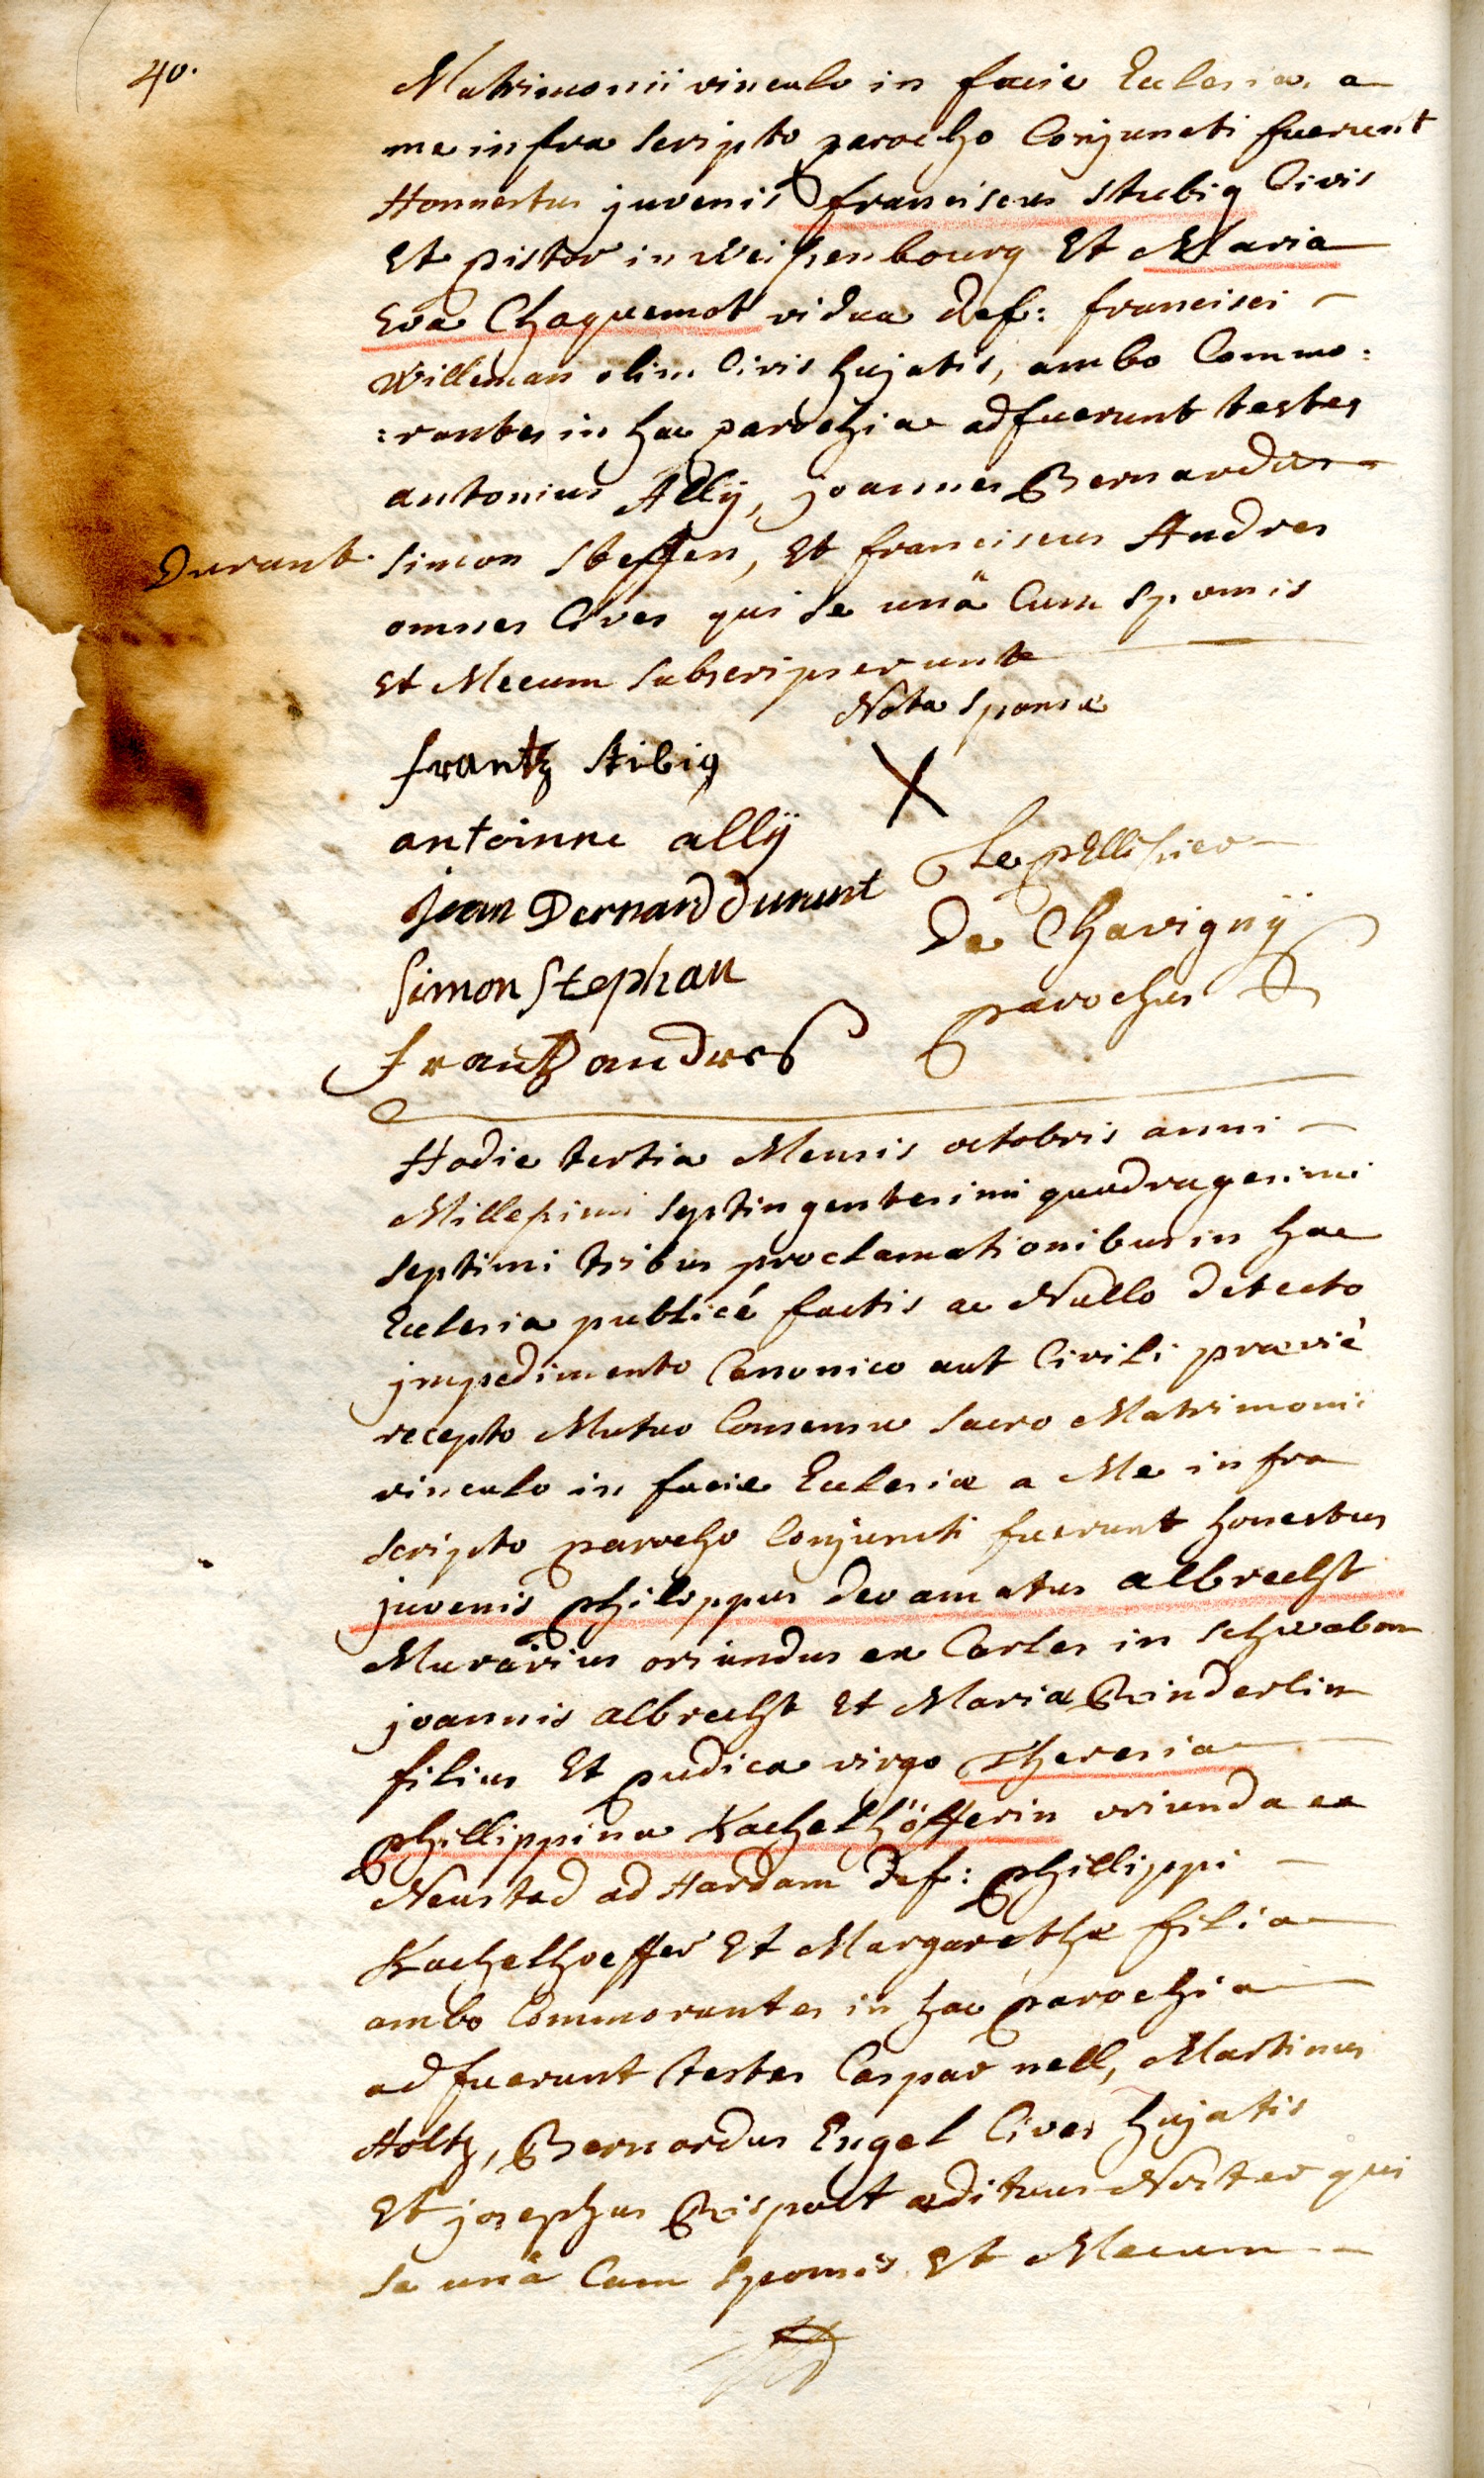 40.
Matrimonii vinculo in facie Ecclesiæ a
me infra scripto parocho Conjuncti fuerunt
Honnestus juvenis franciscus Stubig Civis
Et pistor in Weissenbourg Et Maria
Eva Chaquemot vidua def: francisci
Willeman olim Civis hujatis, ambo Commo:
:rantes in hac parochia adfuerunt testes
antonius Ally, joannes Bernardus
Durant. Simon Steffen, Et franciscus Andres
omnes Cives qui se unâ Cum Sponsis
Et Mecum Subscripserunt
Nota Sponsæ
frantz stibig
X
antoinne allÿ
Le pellissier
jean Bernard durant
De Chavignÿ
Simon Stephan
parochus
frantz andres
Hodie tertia Mensis octobris anni
Millesimi Septingentesimi quadragesimi
Septimi tribus proclamationibus in hac
Ecclesia publicé factis ac Nullo detecto
jmpedimento Canonico aut Civili prævié
recepto Mutuo Consensu Sacro Matrimonii
vinculo in facie Ecclesiæ a Me infra
Scripto parocho Conjuncti fuerunt honestus
juvenis philippus deoamatus albrecht
Murarius oriundus ex Carles in Schwaben
joannis albrecht Et Mariæ Binderlin
filius Et pudica virgo Theresia
phillippina Kachelhöfferin oriunda ex
Neustad ad Hardam def: phillippi
Kachelhoeffer Et Margarethæ filia
ambo Commorantes in hac parochia
adfuerunt testes Caspar nell, Martinus
Holtz, Bernardus Engel Cives hujatis
Et josephus Rispalt ædituus Noster qui
se unâ Cum Sponsis Et Mecum